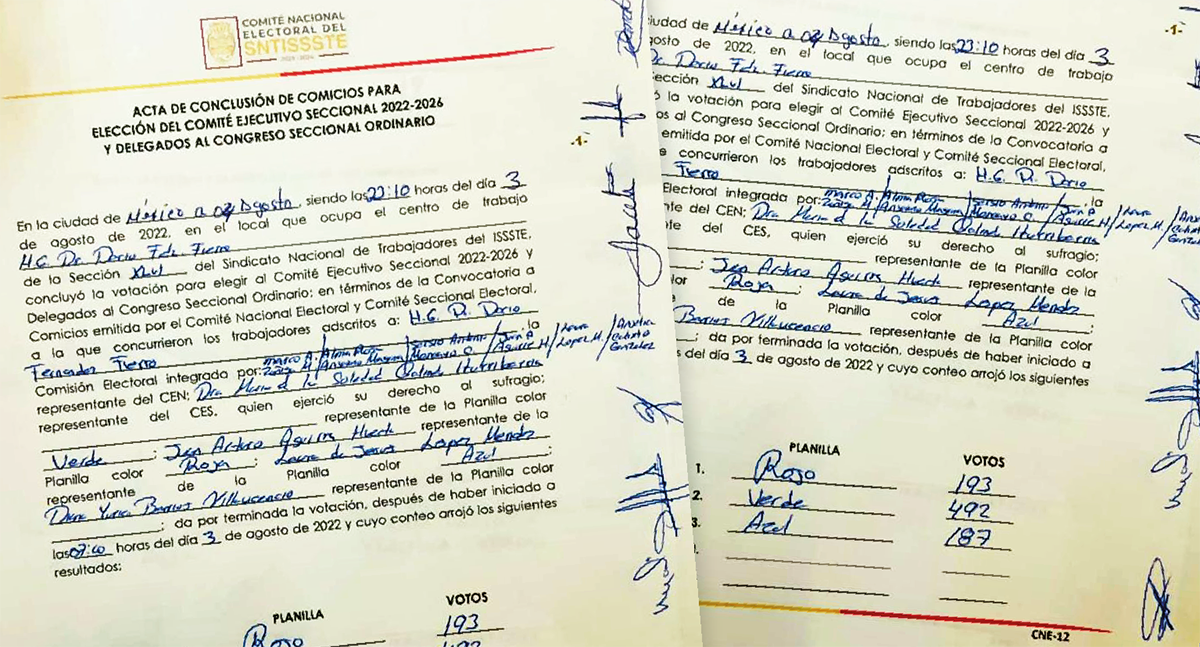 COMITÉ NACIONAL
ELECTORAL DEL
SNTISSSTE
ACTA DE CONCLUSIÓN DE COMICIOS PARA
ELECCIÓN DEL COMITÉ EJECUTIVO SECCIONAL 2022-2026
Y DELEGADOS AL CONGRESO SECCIONAL ORDINARIO
-1-
En la ciudad de México a Agosto, siendo las 23:10 horas del día 3
de agosto de 2022, en el local que ocupa el centro de trabajo
H.G. Dr. Darío Fdz. Fierro
de la Sección del Sindicato Nacional de Trabajadores del ISSSTE,
concluyó la votación para elegir al Comité Ejecutivo Seccional 2022-2026 y
Delegados al Congreso Seccional Ordinario; en términos de la Convocatoria a
Comicios emitida por el Comité Nacional Electoral y Comité Seccional Electoral,
a la que concurrieron los trabajadores adscritos a: H.G. Dr. Dario
Fernandez Fierro, la
Comisión Electoral integrada por:
representante del CEN; Dra. Soledad
representante del CES, quien ejerció su derecho al sufragio;
representante de la Planilla color
Verde; Arturo Aguirre representante de la
Planilla color Roja; Laura de Jesus Lopez Mendez
representante de la Planilla color Azul;
Barrios Villavicencio representante de la Planilla color
; da por terminada la votación, después de haber iniciado a
las horas del día 3 de agosto de 2022 y cuyo conteo arrojó los siguientes
resultados:
PLANILLA VOTOS
Rojo 193
ciudad de México a Agosto, siendo las 23:10 horas del día 3
gosto de 2022, en el local que ocupa el centro de trabajo
Dr. Dario Fdz. Fierro
Sección del Sindicato Nacional de Trabajadores del ISSSTE,
ó la votación para elegir al Comité Ejecutivo Seccional 2022-2026 y
os al Congreso Seccional Ordinario; en términos de la Convocatoria a
emitida por el Comité Nacional Electoral y Comité Seccional Electoral,
e concurrieron los trabajadores adscritos a: H.G. Dr. Dario
Fierro, la
Electoral integrada por:
nte del CEN; Dra. Soledad
te del CES, quien ejerció su derecho al sufragio;
representante de la Planilla color
; Arturo Aguirre representante de la
lor Roja; Laura de Jesus Lopez Mendez
e de la Planilla color Azul;
Barrios Villavicencio representante de la Planilla color
; da por terminada la votación, después de haber iniciado a
s del día 3 de agosto de 2022 y cuyo conteo arrojó los siguientes
-1-
PLANILLA VOTOS
1. Rojo 193
2. Verde 492
3. Azul 187
CNE-12